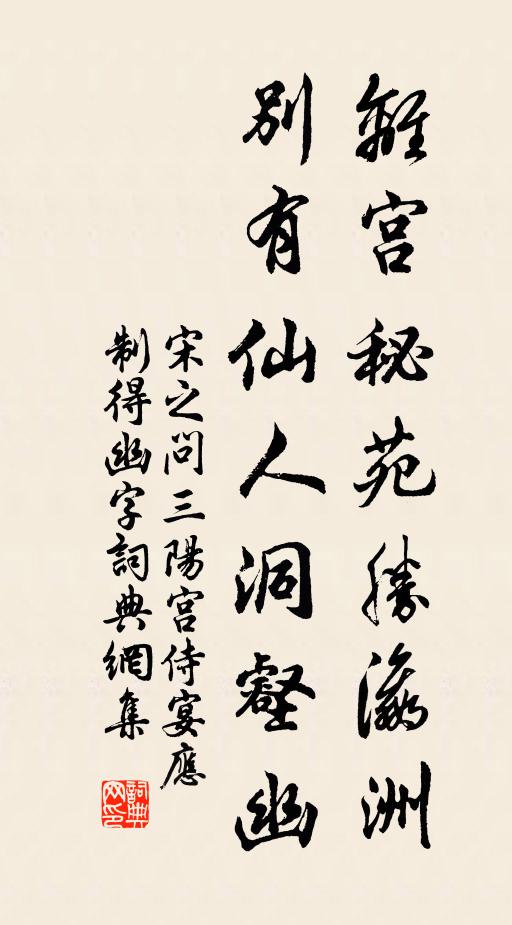 離宮秘苑勝瀛洲
別有仙人洞壑幽
宋之問三陽宮侍宴應
制得幽字詞典網集
詞典
网印